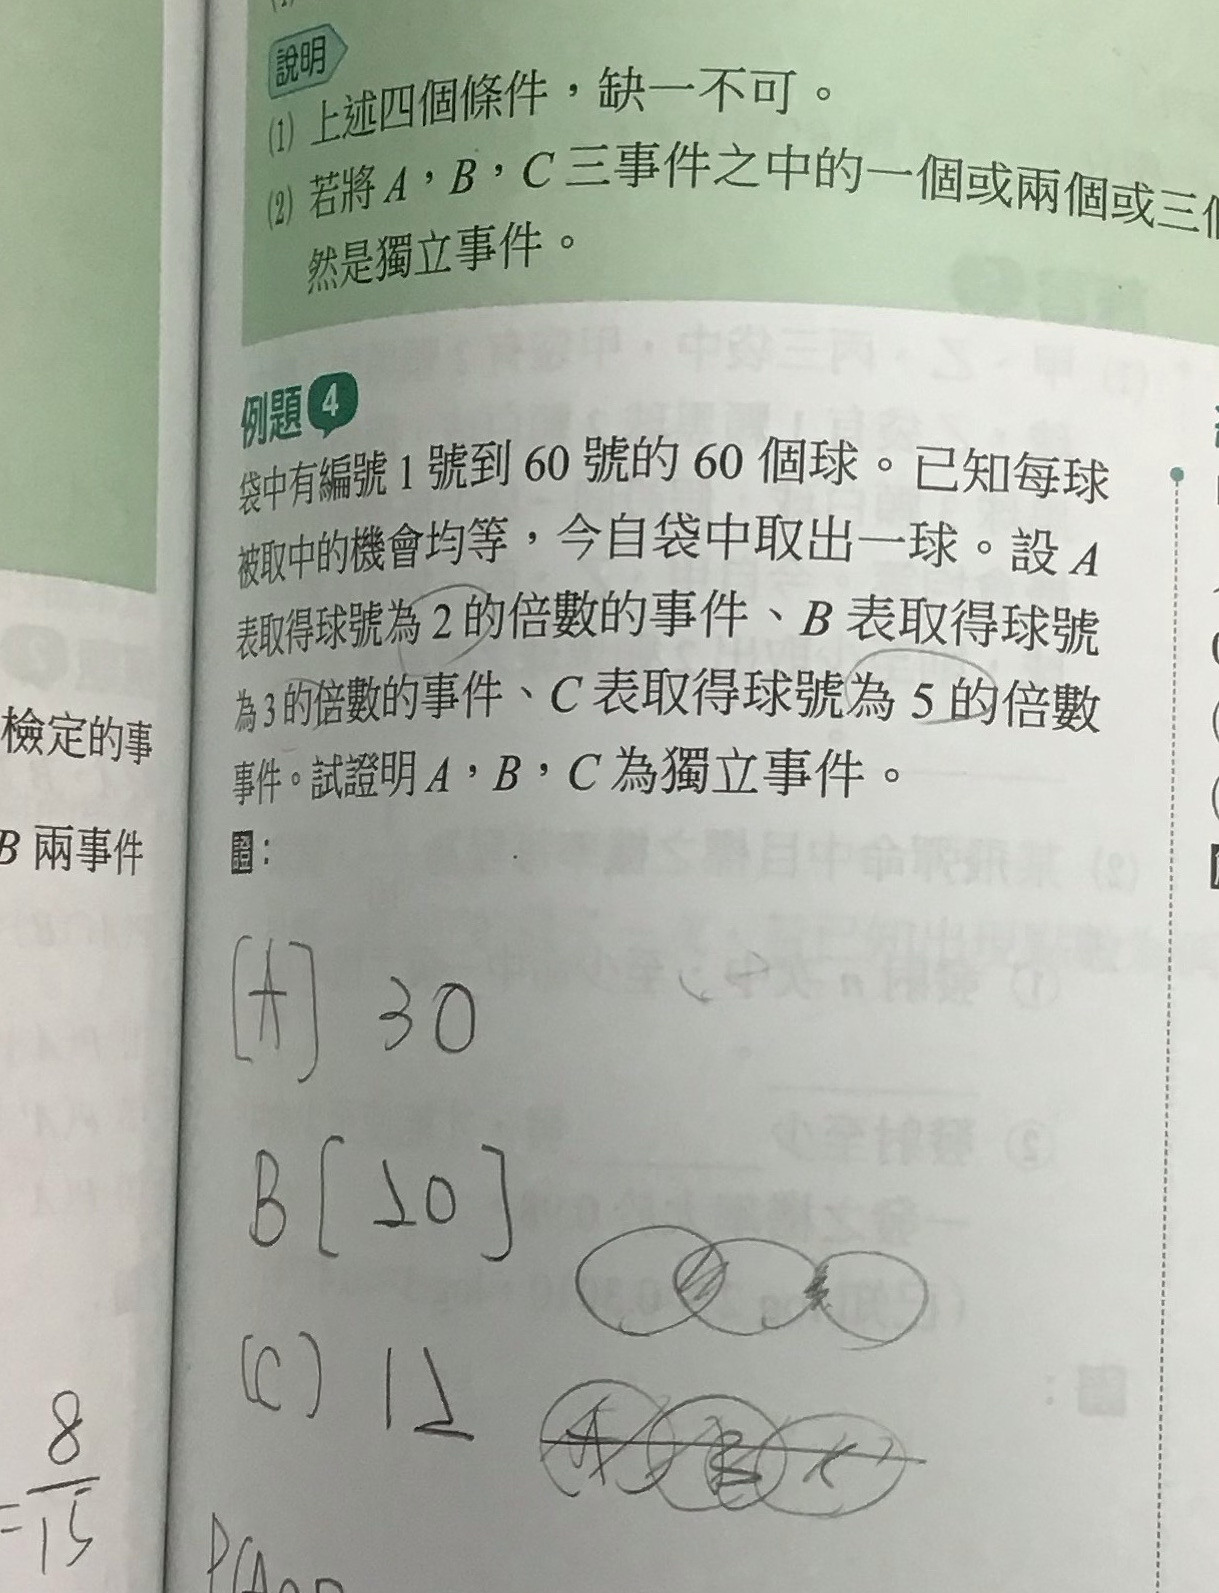 說明
(1) 上述四個條件,缺一不可。
(2) 若將 A,B,C 三事件之中的一個或兩個或三
然是獨立事件。
例題 4
袋中有編號 1 號到 60 號的 60 個球。已知每球
被取中的機會均等,今自袋中取出一球。設 A
表取得球號為 2 的倍數的事件、B 表取得球號
為 3 的倍數的事件、C 表取得球號為 5 的倍數
事件。試證明 A,B,C 為獨立事件。
[A] 30
B [20]
(C) 12
A B C
檢定的事
B 兩事件
= 8/15